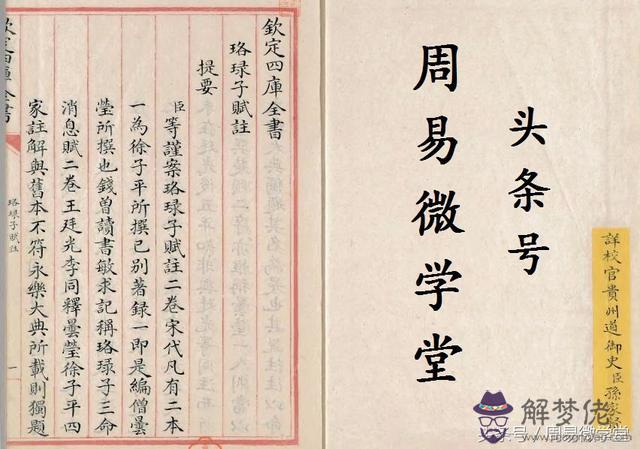 欽定四庫全書
珞琭子賦註
提要
臣等謹案珞琭子賦註二卷宋代凡有二本
一為徐子平所撰已别著録一即是編僧曇
瑩所撰也錢曽讀書敏求記稱珞琭子三命
消息賦二卷王廷光李同釋曇瑩徐子平四
家註解與舊本不符永樂大典所載則獨題
欽定四庫全書
珞琭子賦註
一
头条号
周易微学堂
詳校官貴州道御史臣孫
解梦佬
头条号 / 周易微学堂